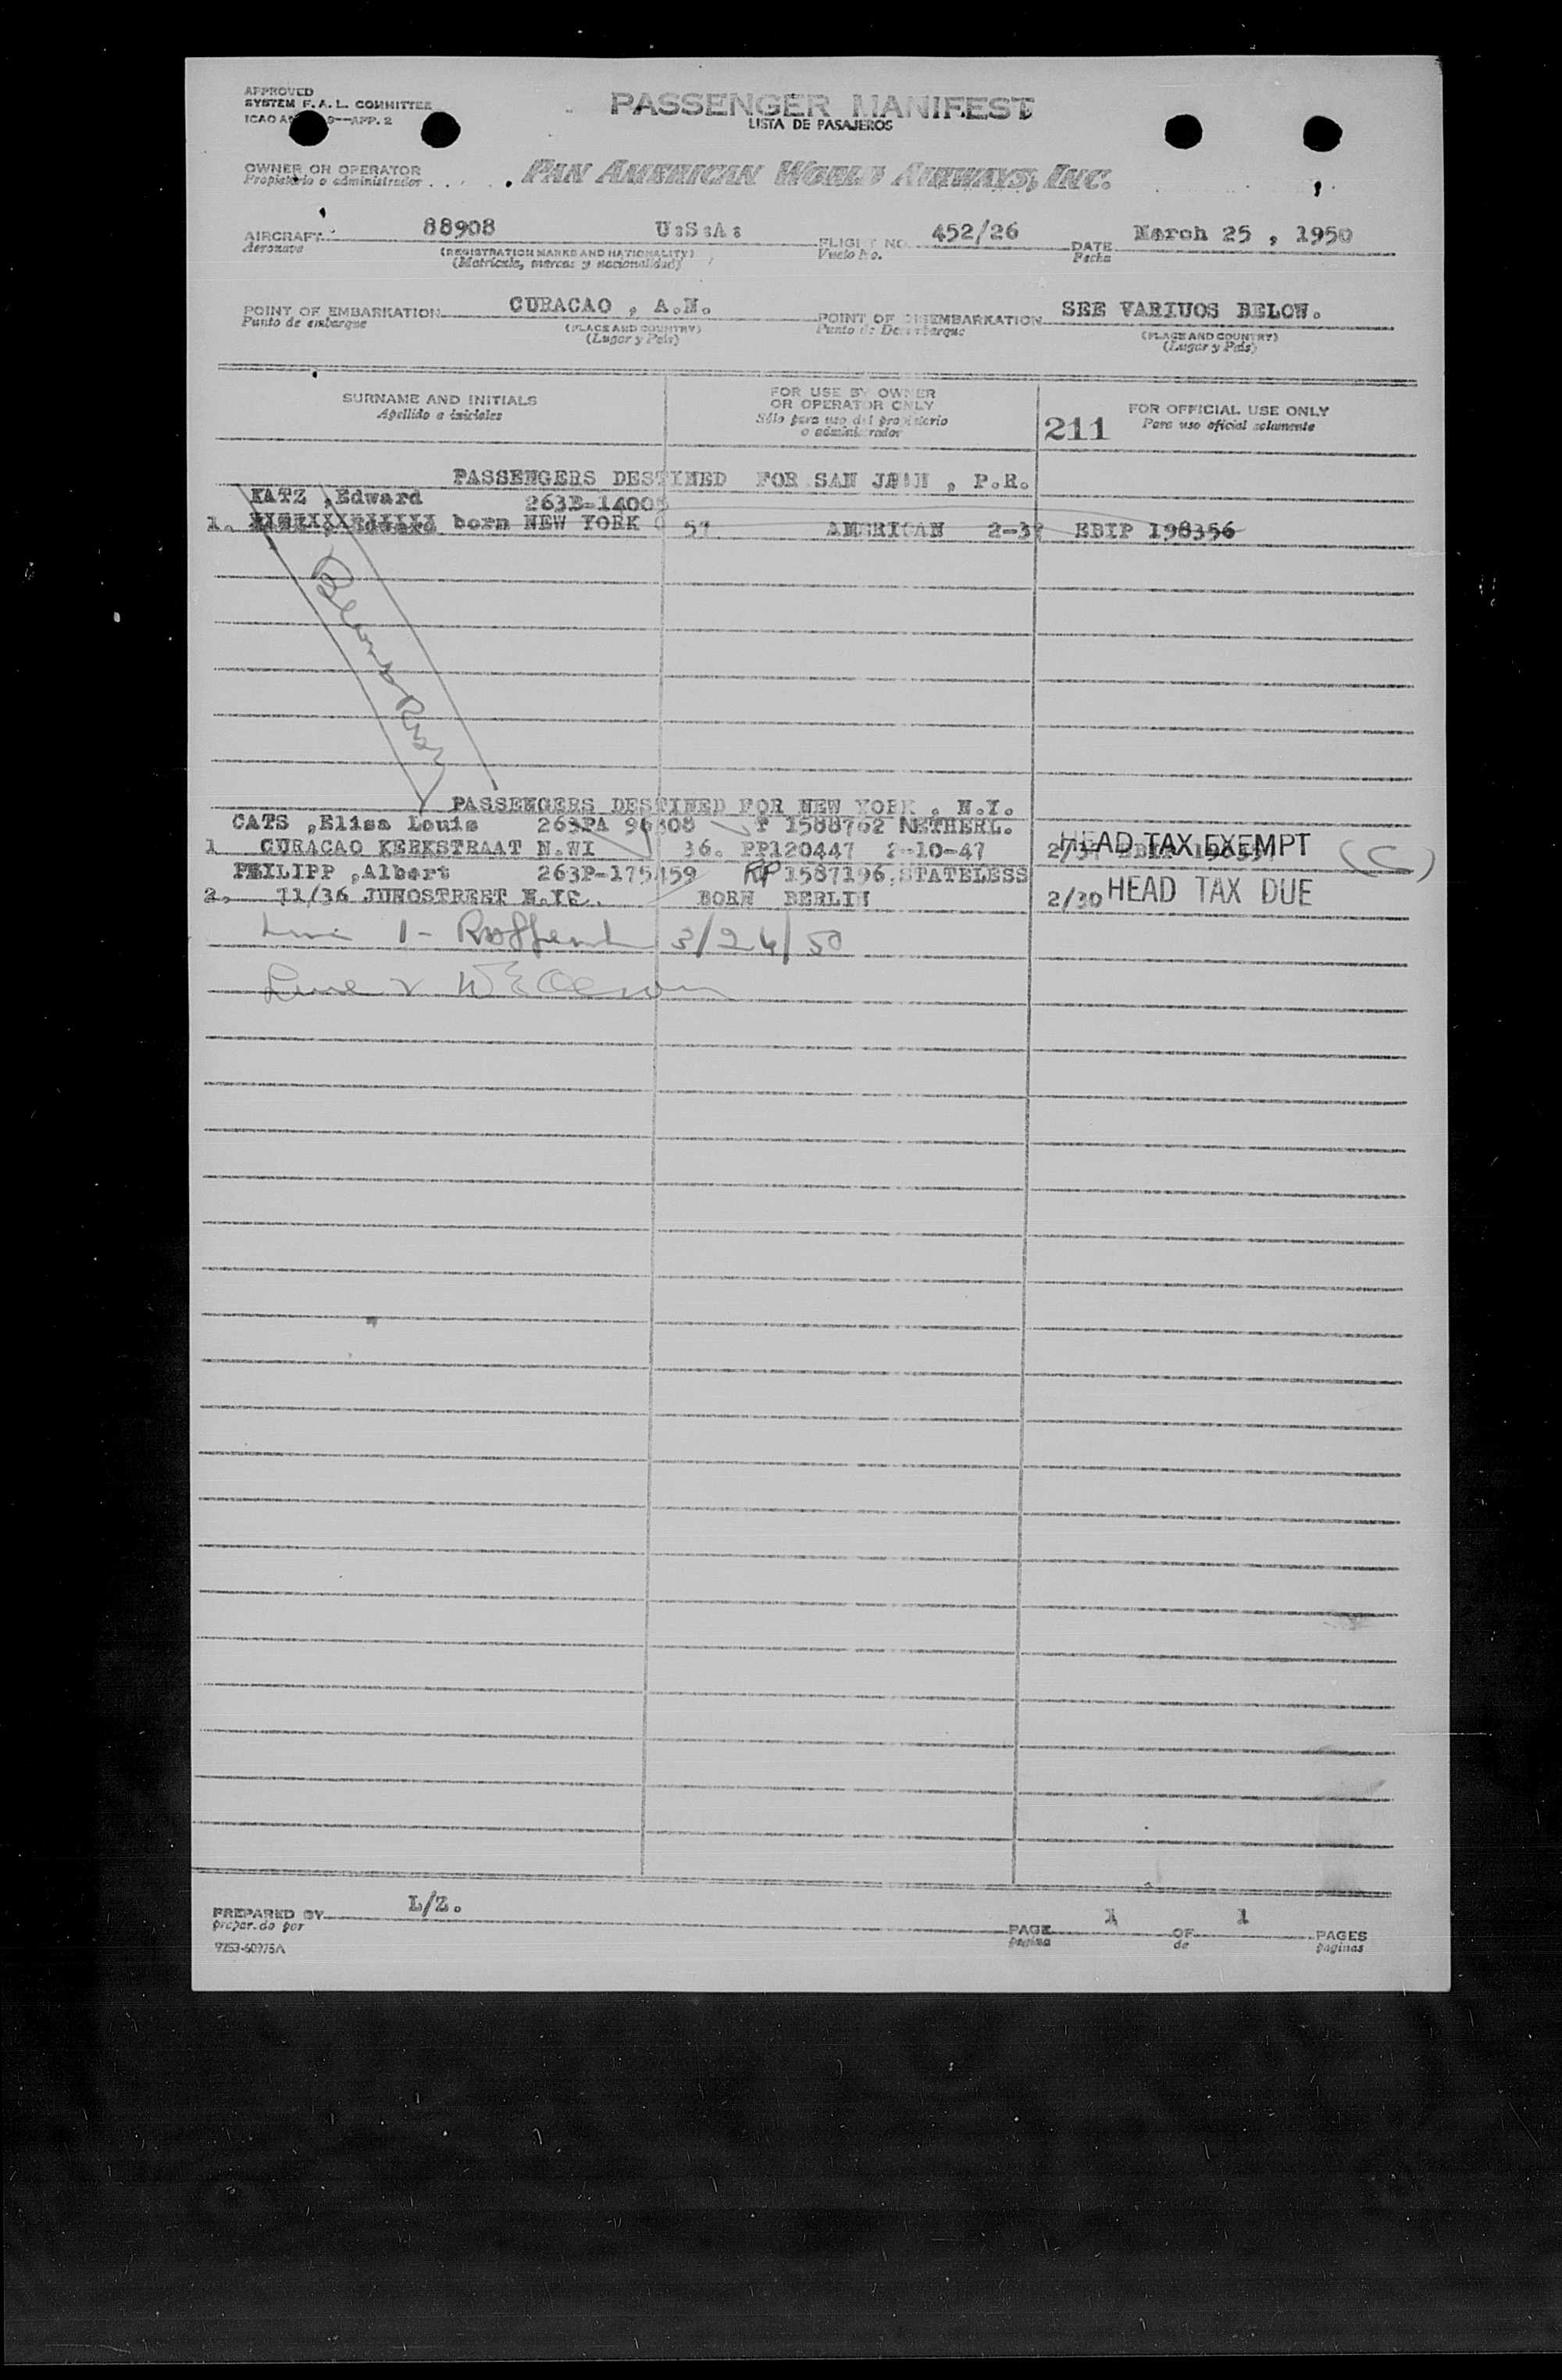 APPROVED
SYSTEM F. A. L. COMMITTEE
ICAO 9—APP. 2
PASSENGER MANIFEST
LISTA DE PASAJEROS
OWNER OR OPERATOR
Propietario o administrador
PAN AMERICAN WORLD AIRWAYS, INC.
AIRCRAFT 88908 U:S:A: FLIGHT NO. 452/26 DATE March 25 , 1950
Aeronave (REGISTRATION MARKS AND NATIONALITY) Vuelo No. Fecha
(Matricula, marcas y nacionalidad)
POINT OF EMBARKATION CURACAO , A.N. POINT OF DISEMBARKATION SEE VARIUOS BELOW.
Punto de embarque (PLACE AND COUNTRY) Punto de Desembarque (PLACE AND COUNTRY)
(Lugar y País) (Lugar y País)
SURNAME AND INITIALS FOR USE BY OWNER OR OPERATOR ONLY 211 FOR OFFICIAL USE ONLY
Apellido e iniciales Sólo para uso del propietario o administrador Para uso oficial solamente
PASSENGERS DESTINED FOR SAN JUAN , P.R.
KATZ ,Edward 263B-14005
1. Edward born NEW YORK 57 AMERICAN 2-37 EBIP 198356
PASSENGERS DESTINED FOR NEW YORK , N.Y.
CATS ,Elisa Louis 263PA 96808 P 1588762 NETHERL.
1 CURACAO KERKSTRAAT N.WI 36. PP120447 2-10-47 2/37 EBIP HEAD TAX EXEMPT (C)
PHILIPP ,Albert 263P-175459 RP 1587196,STATELESS
2. 71/36 JUNOSTREET N.YC. BORN BERLIN 2/30 HEAD TAX DUE
Line 1- 3/26/50
Line 2
PREPARED BY L/Z. PAGE 1 OF 1 PAGES
preparado por página de páginas